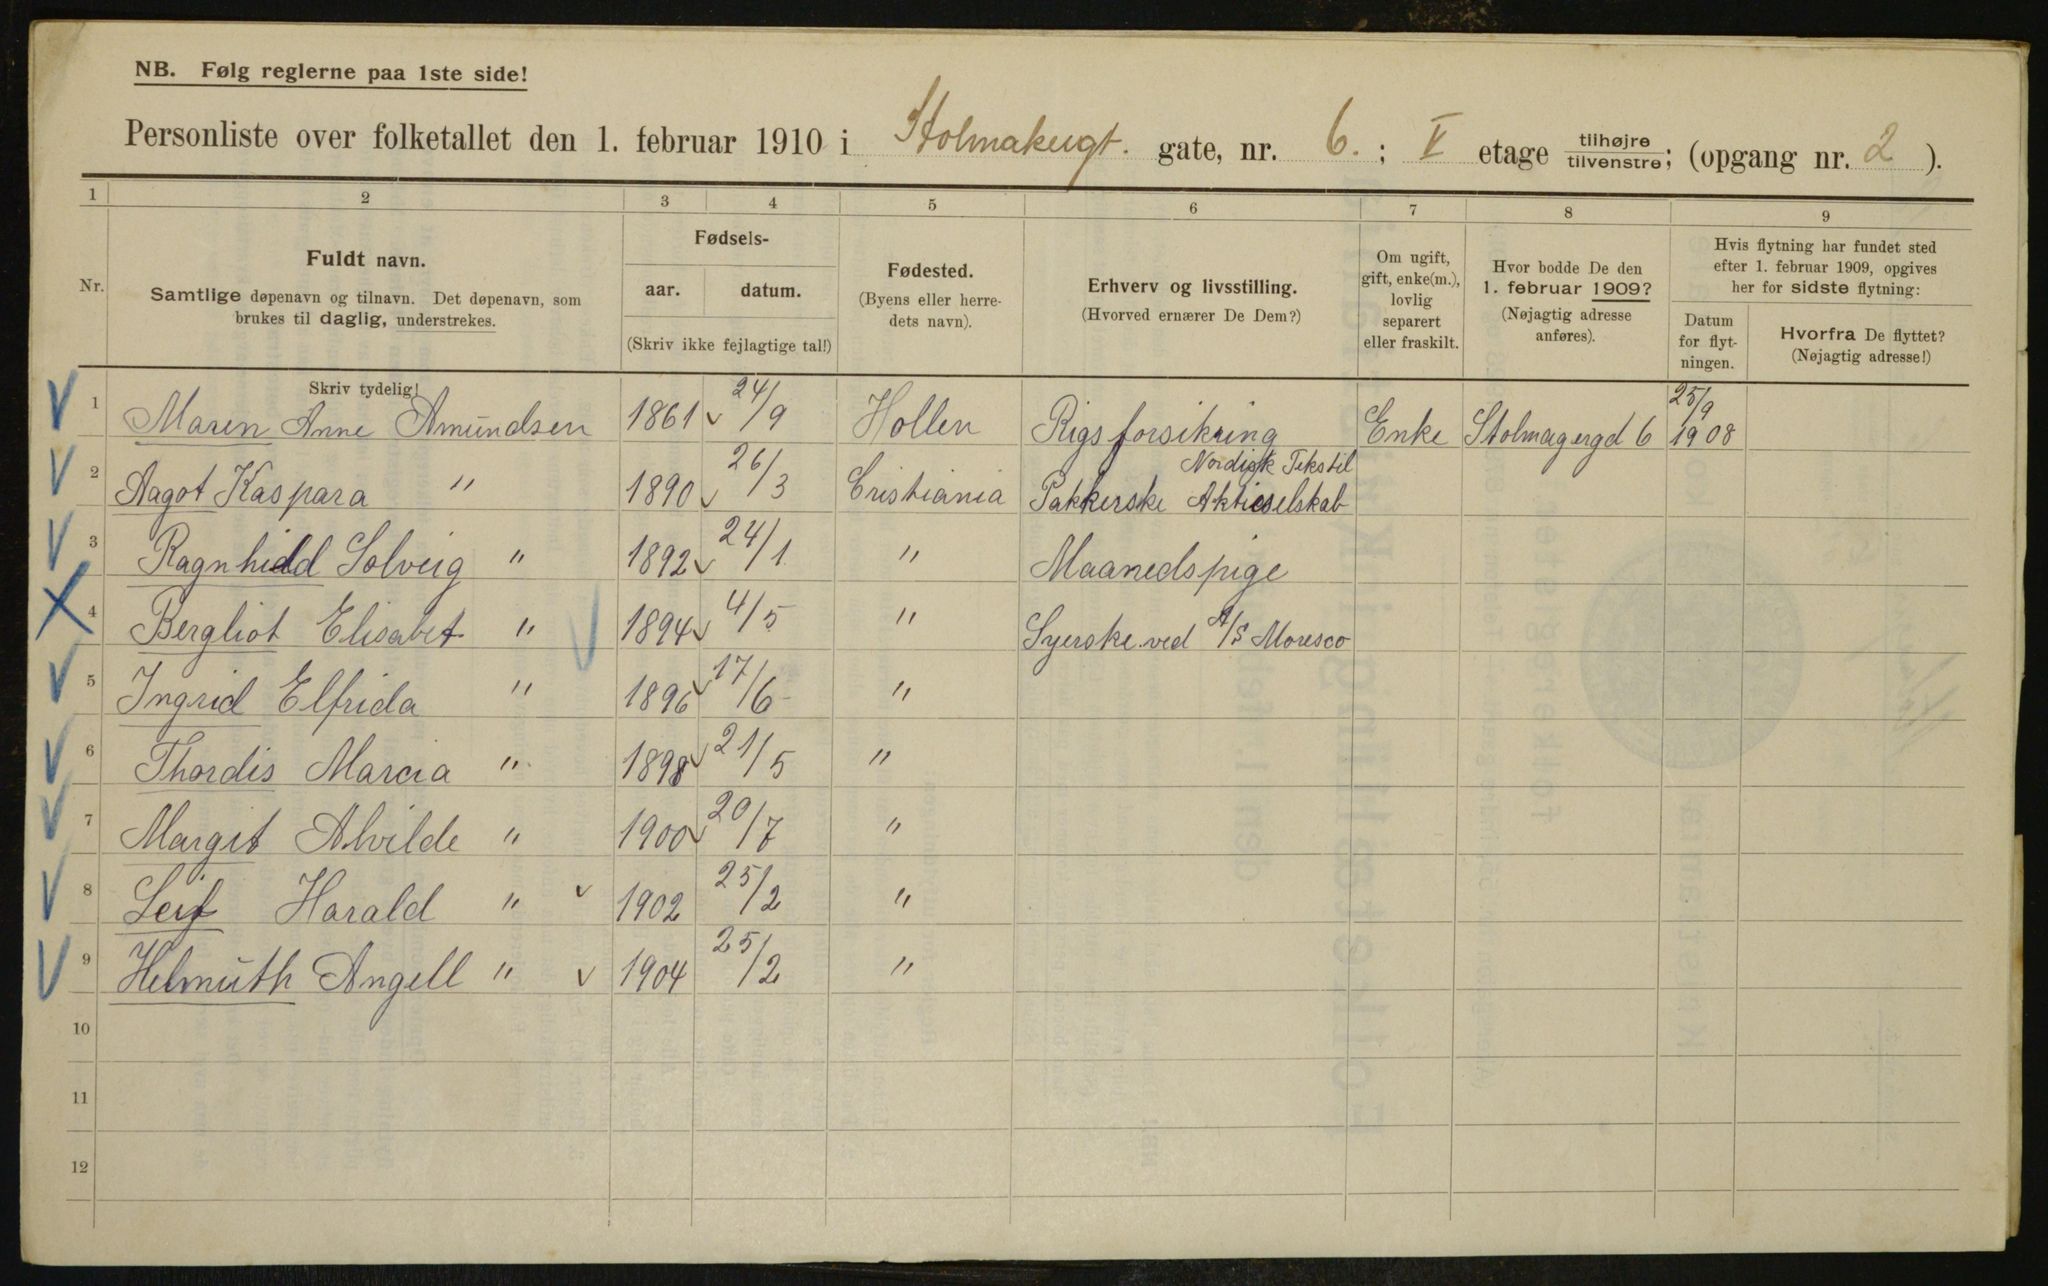 NB. Følg reglerne paa 1ste side!
Personliste over folketallet den 1. februar 1910 i Stolmakergt. gate, nr. 6. ; V etage tilhøjre tilvenstre; (opgang nr. 2 ).
1 2 3 4 5 6 7 8 9
Nr.
Fuldt navn.
Samtlige døpenavn og tilnavn. Det døpenavn, som
brukes til daglig, understrekes.
Skriv tydelig!
Fødsels-
aar. datum.
(Skriv ikke fejlagtige tal!)
Fødested.
(Byens eller herre-
dets navn).
Erhverv og livsstilling.
(Hvorved ernærer De Dem?)
Om ugift,
gift, enke(m.),
lovlig
separert
eller fraskilt.
Hvor bodde De den
1. februar 1909?
(Nøjagtig adresse
anføres).
Hvis flytning har fundet sted
efter 1. februar 1909, opgives
her for sidste flytning:
Datum
for flyt-
ningen.
Hvorfra De flyttet?
(Nøjagtig adresse!)
1 Maren Anne Amundsen 1861 24/9 Hollen Rigsforsikring Enke Stolmagergd 6 25/9 1908
2 Aagot Kaspara " 1890 26/3 Cristiania Pakkerske Nordisk Tekstil Aktieselskab
3 Ragnhild Solveig " 1892 24/1 " Maanedspige
4 Bergliot Elisabet " 1894 4/5 " Syerske ved A/S Moresco
5 Ingrid Elfrida " 1896 17/6 "
6 Thordis Marcia " 1898 21/5 "
7 Margit Alvilde " 1900 20/7 "
8 Leif Harald " 1902 25/2 "
9 Helmuth Angell " 1904 25/2 "
10
11
12